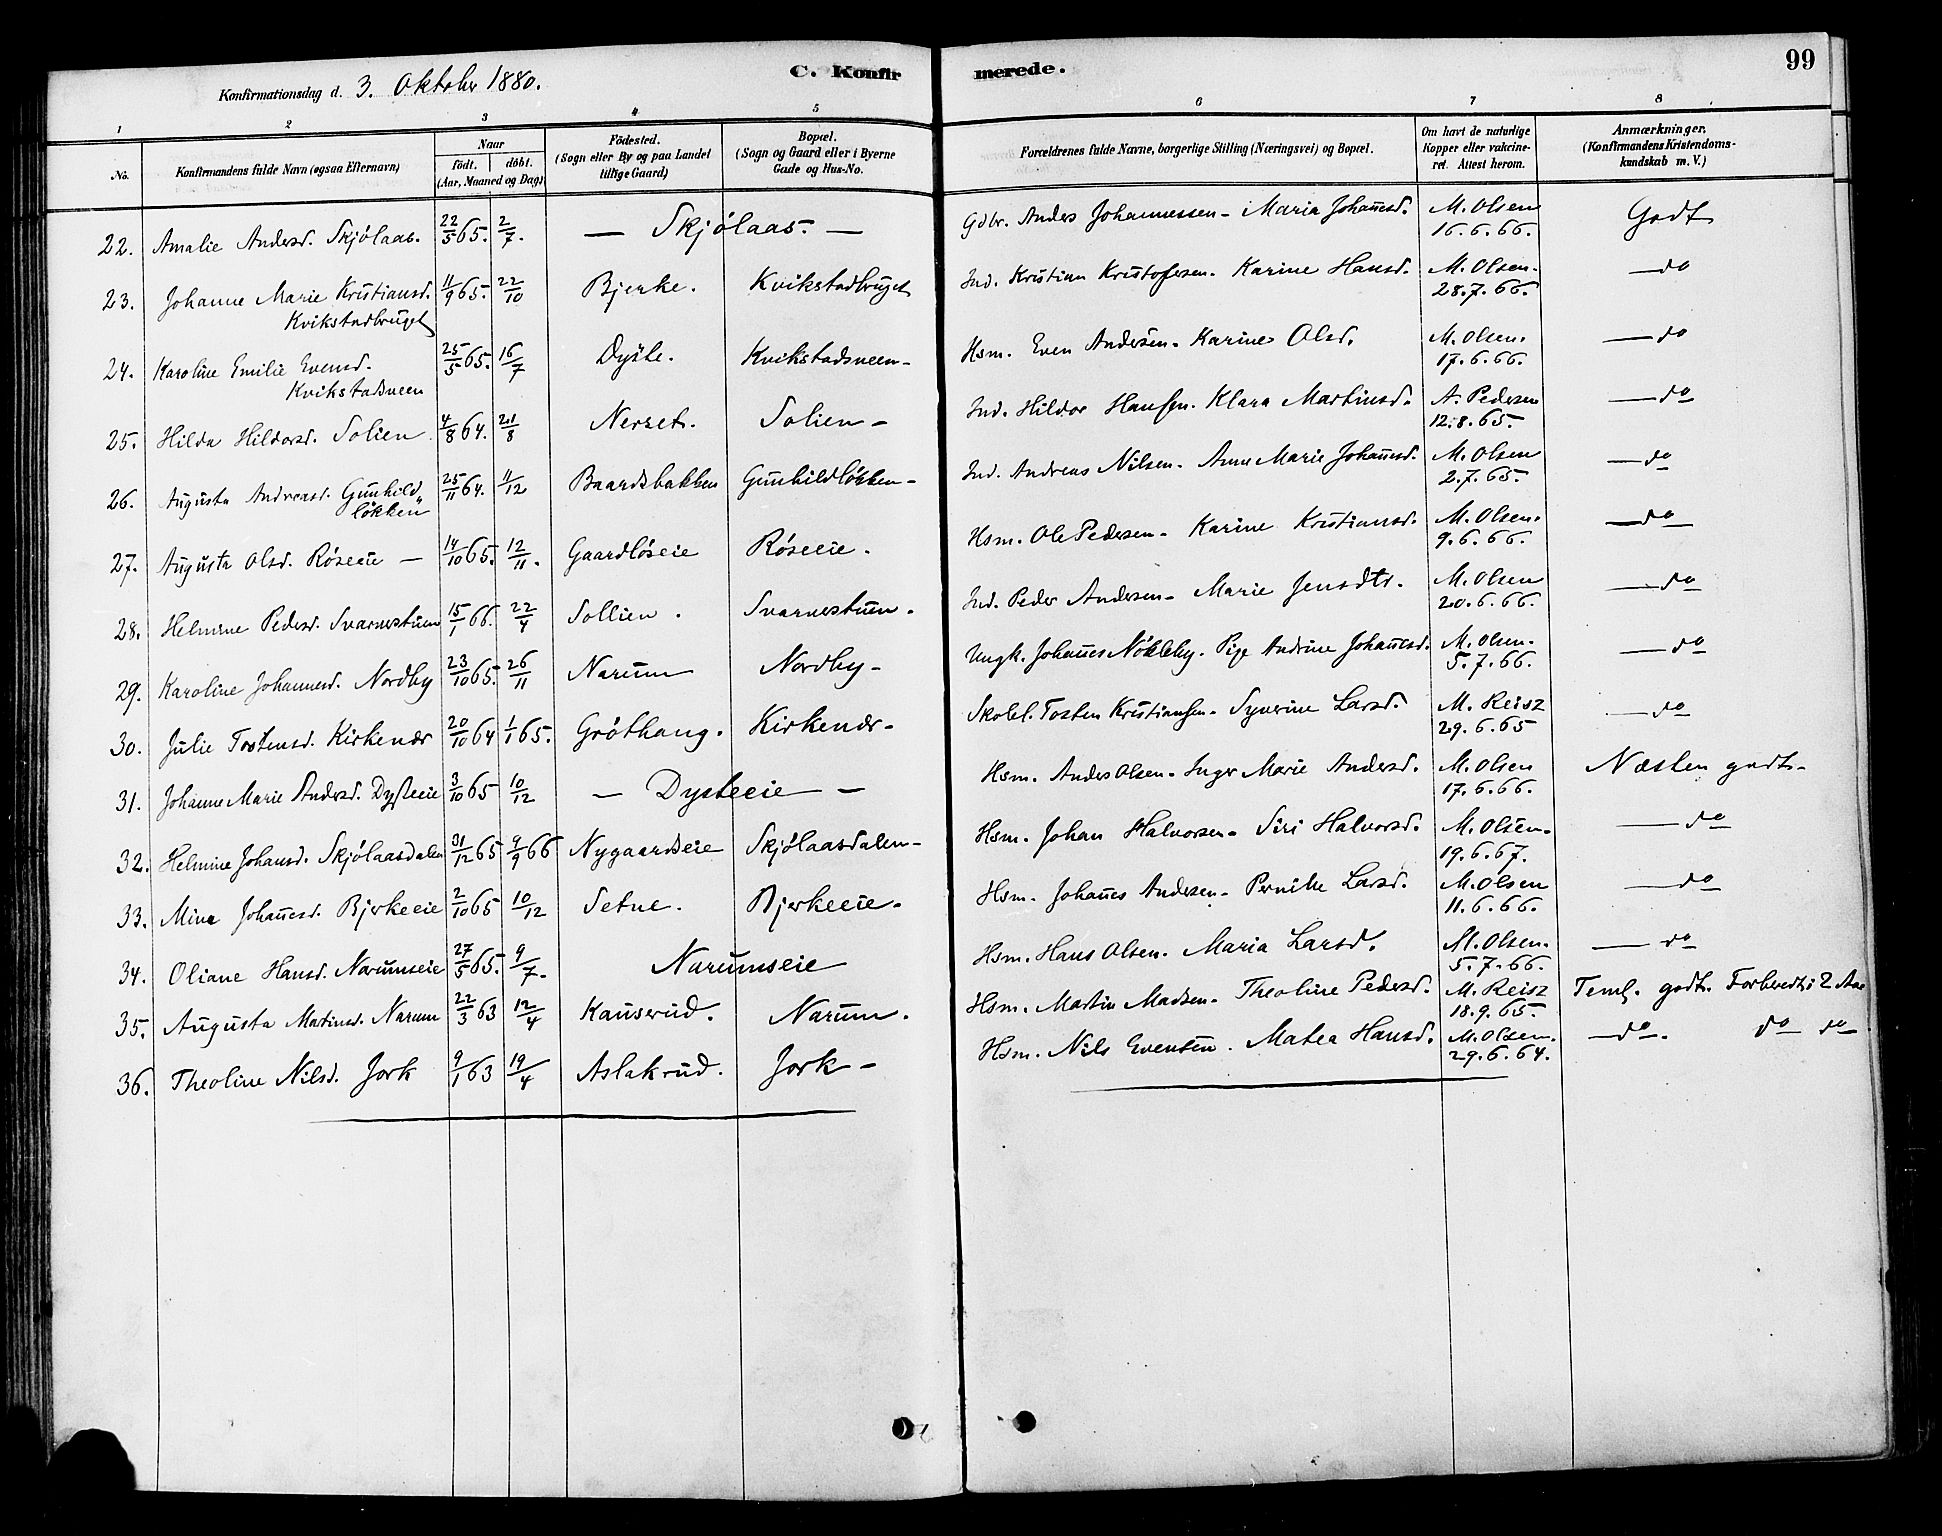 Konfirmationsdag d. 3. Oktober 1880.
C. Konfirmerede.
99
1 2 3 4 5 6 7 8
No.
Konfirmandens fulde Navn (ogsaa Efternavn)
Naar
födt. döbt.
(Aar, Maaned og Dag)
Födested.
(Sogn eller By og paa Landet
tillige Gaard)
Bopæl.
(Sogn og Gaard eller i Byerne
Gade og Hus-No.
Forældrenes fulde Navne, borgerlige Stilling (Næringsvei) og Bopæl.
Om havt de naturlige
Kopper eller vakcine-
ret. Attest herom.
Anmærkninger.
(Konfirmandens Kristendoms-
kundskab m. V.)
22. Amalie Andersd. Skjölaas. 22/5 65. 2/7. — Skjölaas. — Gdbr. Anders Johannessen - Maria Johan̄esd. M. Olsen 16.6.66. Godt
23. Johanne Marie Kristiansd. Kvikstadbruget 11/9 65. 22/10 Bjerke. Kvikstadbruget Ind. Kristian Kristofersen. Karine Hansd. M. Olsen. 28.7.66. — do
24. Karoline Emilie Evensd. Kvikstadsveen 25/5 65. 16/7 Dyste. Kvikstadsveen - Hsm. Even Andersen - Karine Olsd. M. Olsen. 17.6.66. — do
25. Hilda Hildorsd. Solien 4/8 64. 21/8 Nerset. Solien - Ind. Hildor Hansen. Klara Martinsd. A. Pedersen 12.8.65. — do
26. Augusta Andreasd. Gunhildlökken 25/11 64. 11/12 Baardsbakken Gunhildlökken - Ind. Andreas Nilsen. Anne Marie Johan̄esd. M. Olsen 2.7.65. — do
27. Augusta Olsd. Röseeie — 14/10 65. 12/11. Gaardlöseie Röseeie. Hsm. Ole Pedersen - Karine Kristiansd. M. Olsen. 9.6.66. — do
28. Helmine Pedersd. Svarverstuen 15/1 66. 22/4 Sollien. Svarverstuen. Ind. Peder Andersen - Marie Jensdtr. M. Olsen 20.6.66. — do
29. Karoline Johannesd. Nordby 23/10 65. 26/11 Narum Nordby - Ungk. Johan̄es Nökleby. Pige Andrine Johan̄esd. M. Olsen. 5.7.66. — do
30. Julie Tostensd. Kirkenær 20/10 64 1/1 65. Gröthaug. Kirkenær - Skolel. Tosten Kristiansen - Syverine Larsd. M. Reisz 29.6.65 — do
31. Johanne Marie Andersd. Dysteeie 3/10 65 10/12 — Dysteeie — Hsm. Anders Olsen - Inger Marie Andersd. M. Olsen 17.6.66. Næsten godt -
32. Helmine Johansd. Skjölaasdalen 31/12 65 9/9 66 Nygaardseie Skjölaasdalen - Hsm. Johan Halvorsen - Siri Halvorsd. M. Olsen. 19.6.67. — do
33. Mina Johan̄esd. Bjerkeeie 2/10 65 10/12 Setne. Bjerkeeie - Hsm. Johan̄es Andersen - Pernille Larsd. M. Olsen 11.6.66. — do
34. Oliane Hansd. Narumseie 27/5 65. 9/7. Narumseie Hsm. Hans Olsen. Maria Larsd. M. Olsen. 5.7.66. — do
35. Augusta Martinsd. Narum 22/3 63 12/4 Kauserud. Narum. Hsm. Martin Madsen. Theoline Pedersd. M. Reisz 18.9.65. Teml. godt. Forberedt i 2 Aar
36. Theoline Nilsd. Jork 9/1 63 19/4 Aslakrud. Jork - Hsm. Nils Eventsen. Matea Hansd. M. Olsen. 29.6.64. — do. do do